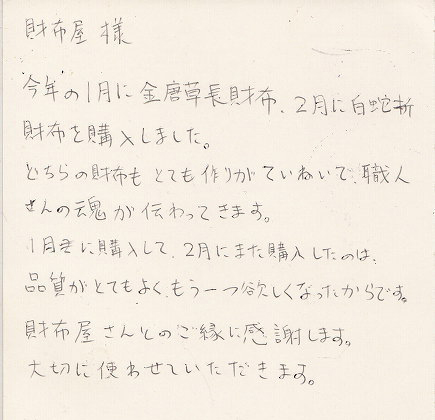 財布屋 様
今年の1月に金唐草長財布、2月に白蛇折
財布を購入しました。
どちらの財布も とても作りがていねいで、職人
さんの魂が伝わってきます。
1月に購入して、2月にまた購入したのは、
品質がとてもよく、もう一つ欲しくなったからです。
財布屋さんとのご縁に感謝します。
大切に使わせていただきます。